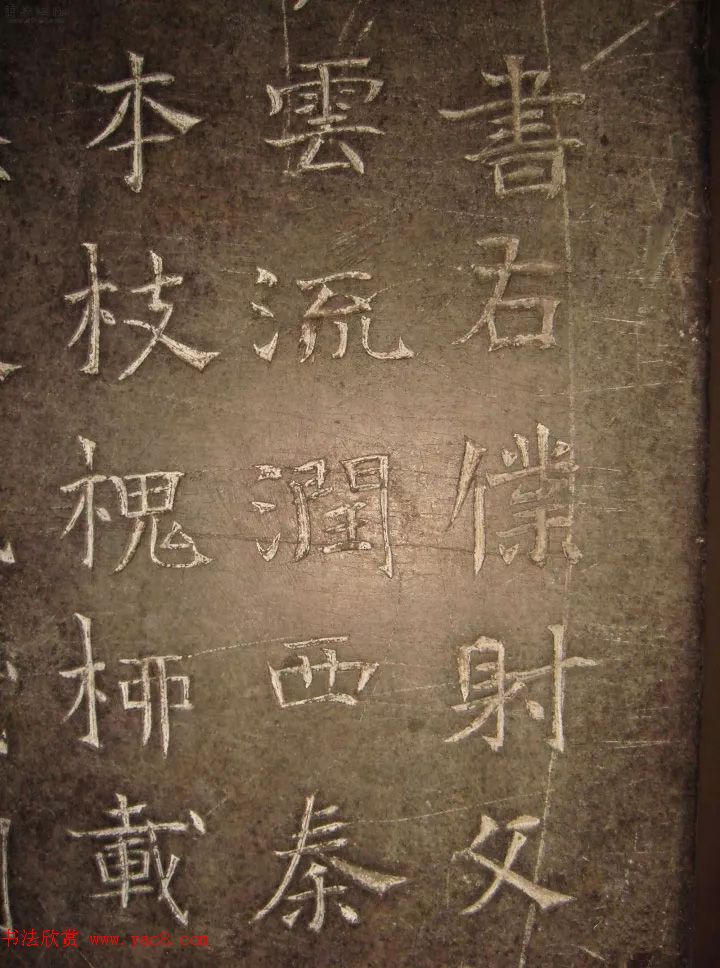 書右僕射父
雲流潤西秦
本枝槐柳載
书法欣赏 www.yac8.com